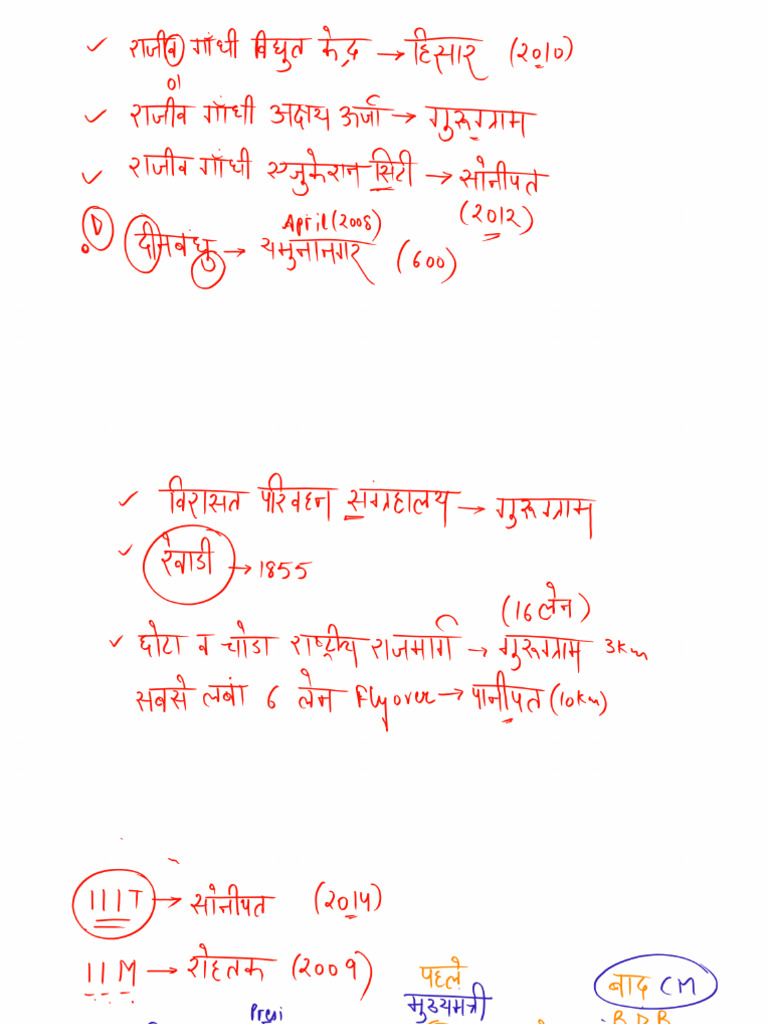 राजीव गाँधी विद्युत केंद्र → हिसार (2010)
राजीव गाँधी अक्षय ऊर्जा → गुरूग्राम
राजीव गाँधी एजुकेशन सिटी → सोनीपत
(2012)
D दीनबंधु → यमुनानगर (600)
April (2008)
विरासत परिवहन संग्रहालय → गुरूग्राम
रेवाडी → 1855
(16 लेन)
छोटा व चोडा राष्ट्रीय राजमार्ग → गुरूग्राम 3km
सबसे लबां 6 लेन Flyover → पानीपत (10km)
IIIT → सोनीपत (2014)
IIM → रोहतक (2009)
पहले
मुख्यमत्री
बाद CM
Presi
B D B